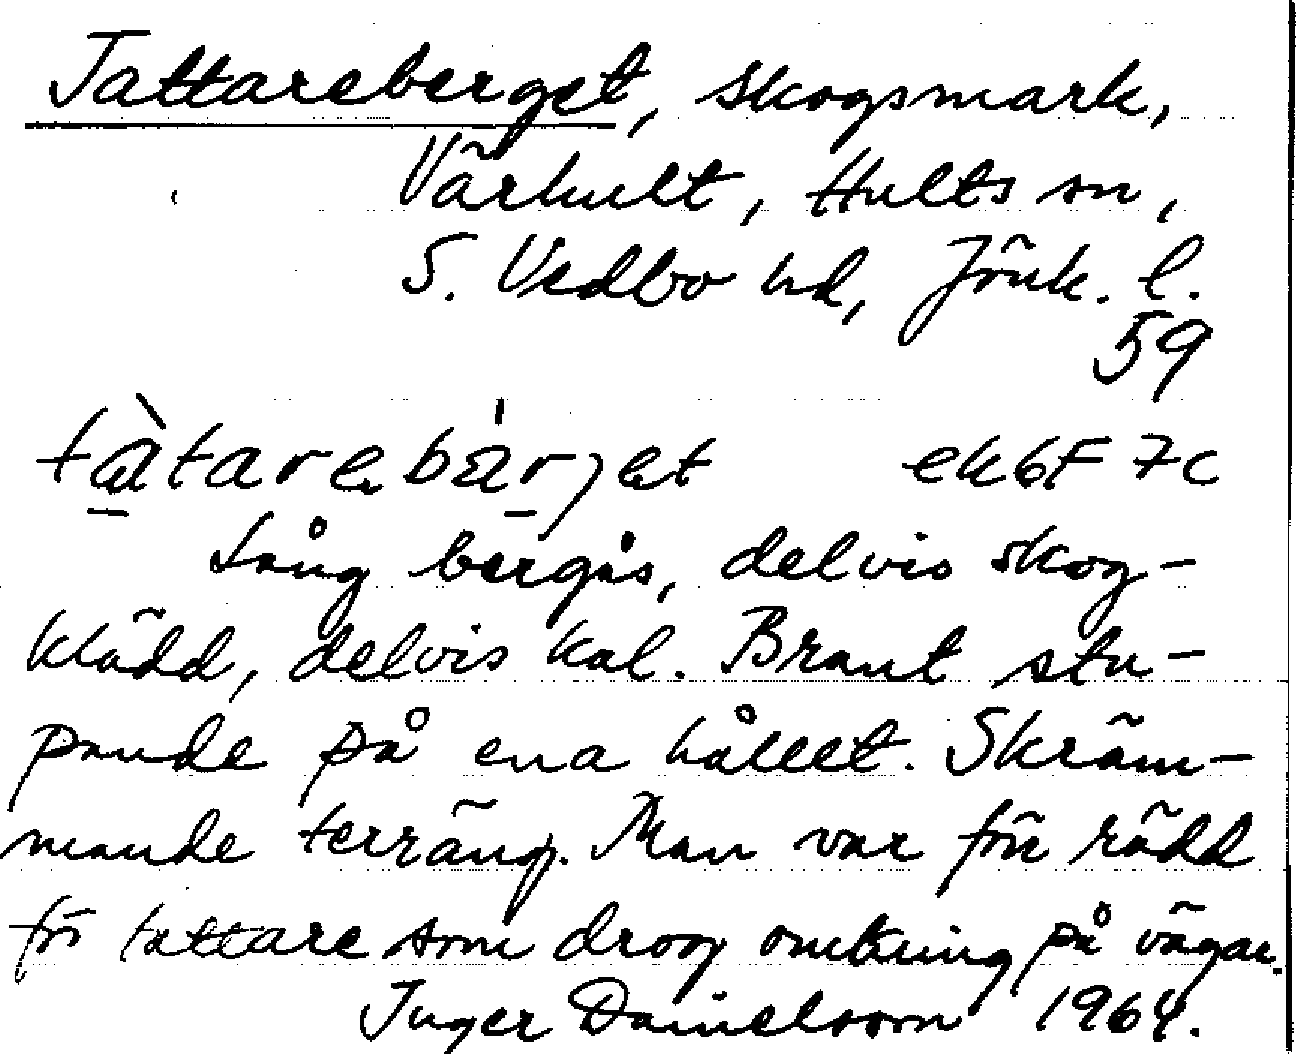 Tattareberget, skogsmark,
Värhult, Hults sn,
S. Vedbo hd, Jönk. l.
59
tàtarebärjet ekbf 7c
Lång bergås, delvis skog-
klädd, delvis kal. Brant stu-
pande på ena hållet. Skräm-
mande terräng. Man var för rädd
för tattare som drog omkring på vägar.
Inger Danielsson 1964.